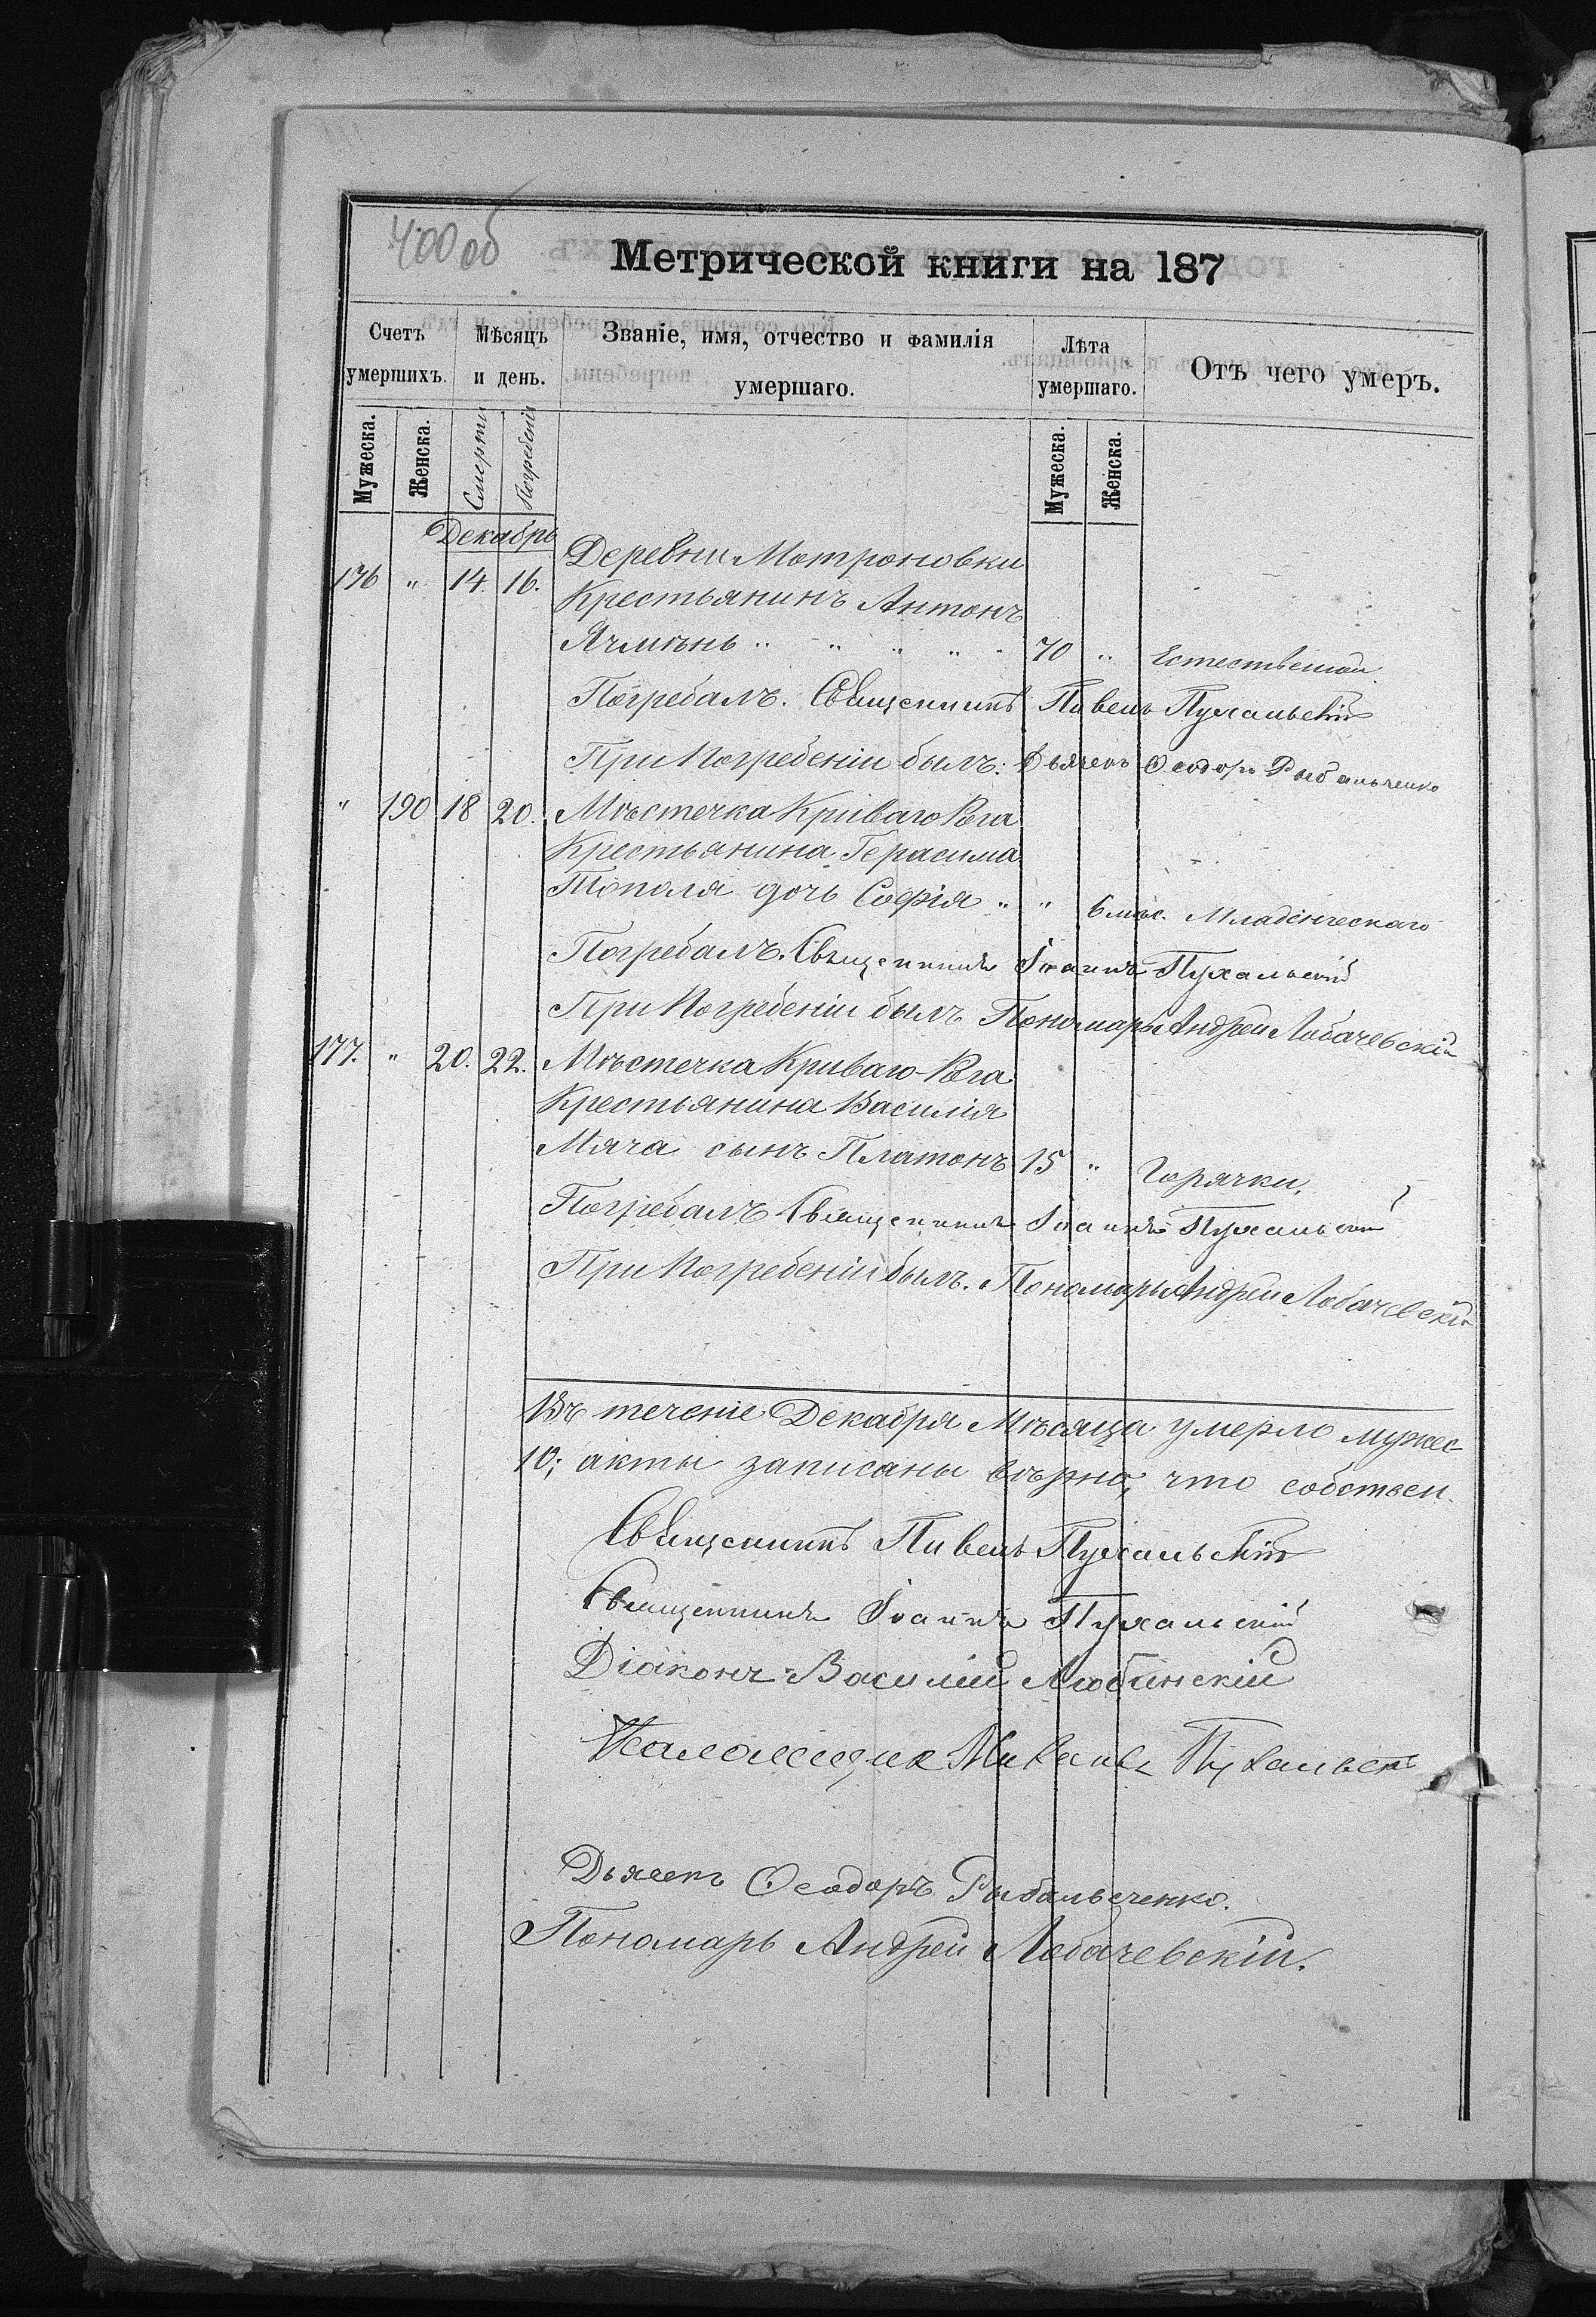 400 об
Метрической книги на 187
Счетъ умершихъ.
Мѣсяцъ и день.
Званіе, имя, отчество и фамилія умершаго.
Лѣта умершаго.
Отъ чего умеръ.
Мужеска. Женска. Смерти Погребенія Мужеска. Женска.
Декабрь
Деревни Мотроновки
176 " 14. 16. Крестьянинъ Антонъ
Ячмѣнь " " " " " 70 " Естественной
Погребалъ. Священникъ Павелъ Пухальскій
При Погребеніи былъ: Дьячекъ Ѳеодоръ Рыбальченко
" 190 18 20. Мѣстечка Криваго Рога
Крестьянина Герасима
Тополя дочь Софія " " 6 мѣс. Младенческаго
Погребалъ. Священникъ Іоаннъ Пухальскій
При Погребеніи былъ Пономарь Андрей Лобачевскій
177. " 20. 22. Мѣстечка Криваго-Рога
Крестьянина Василія
Мяча сынъ Платонъ 15 " Горячки.
Погребалъ Священникъ Іоаннъ Пухальскій
При Погребеніи былъ. Пономарь Андрей Лобачевскій
Въ теченіе Декабря Мѣсяца умерло мужес
10; акты записаны вѣрно, что собствен
Священникъ Павелъ Пухальскій
Священникъ Іоаннъ Пухальскій
Діаконъ Василій Любинскій
Пухальскій
Дьячекъ Ѳеодоръ Рыбальченко.
Пономарь Андрей Лобачевскій.